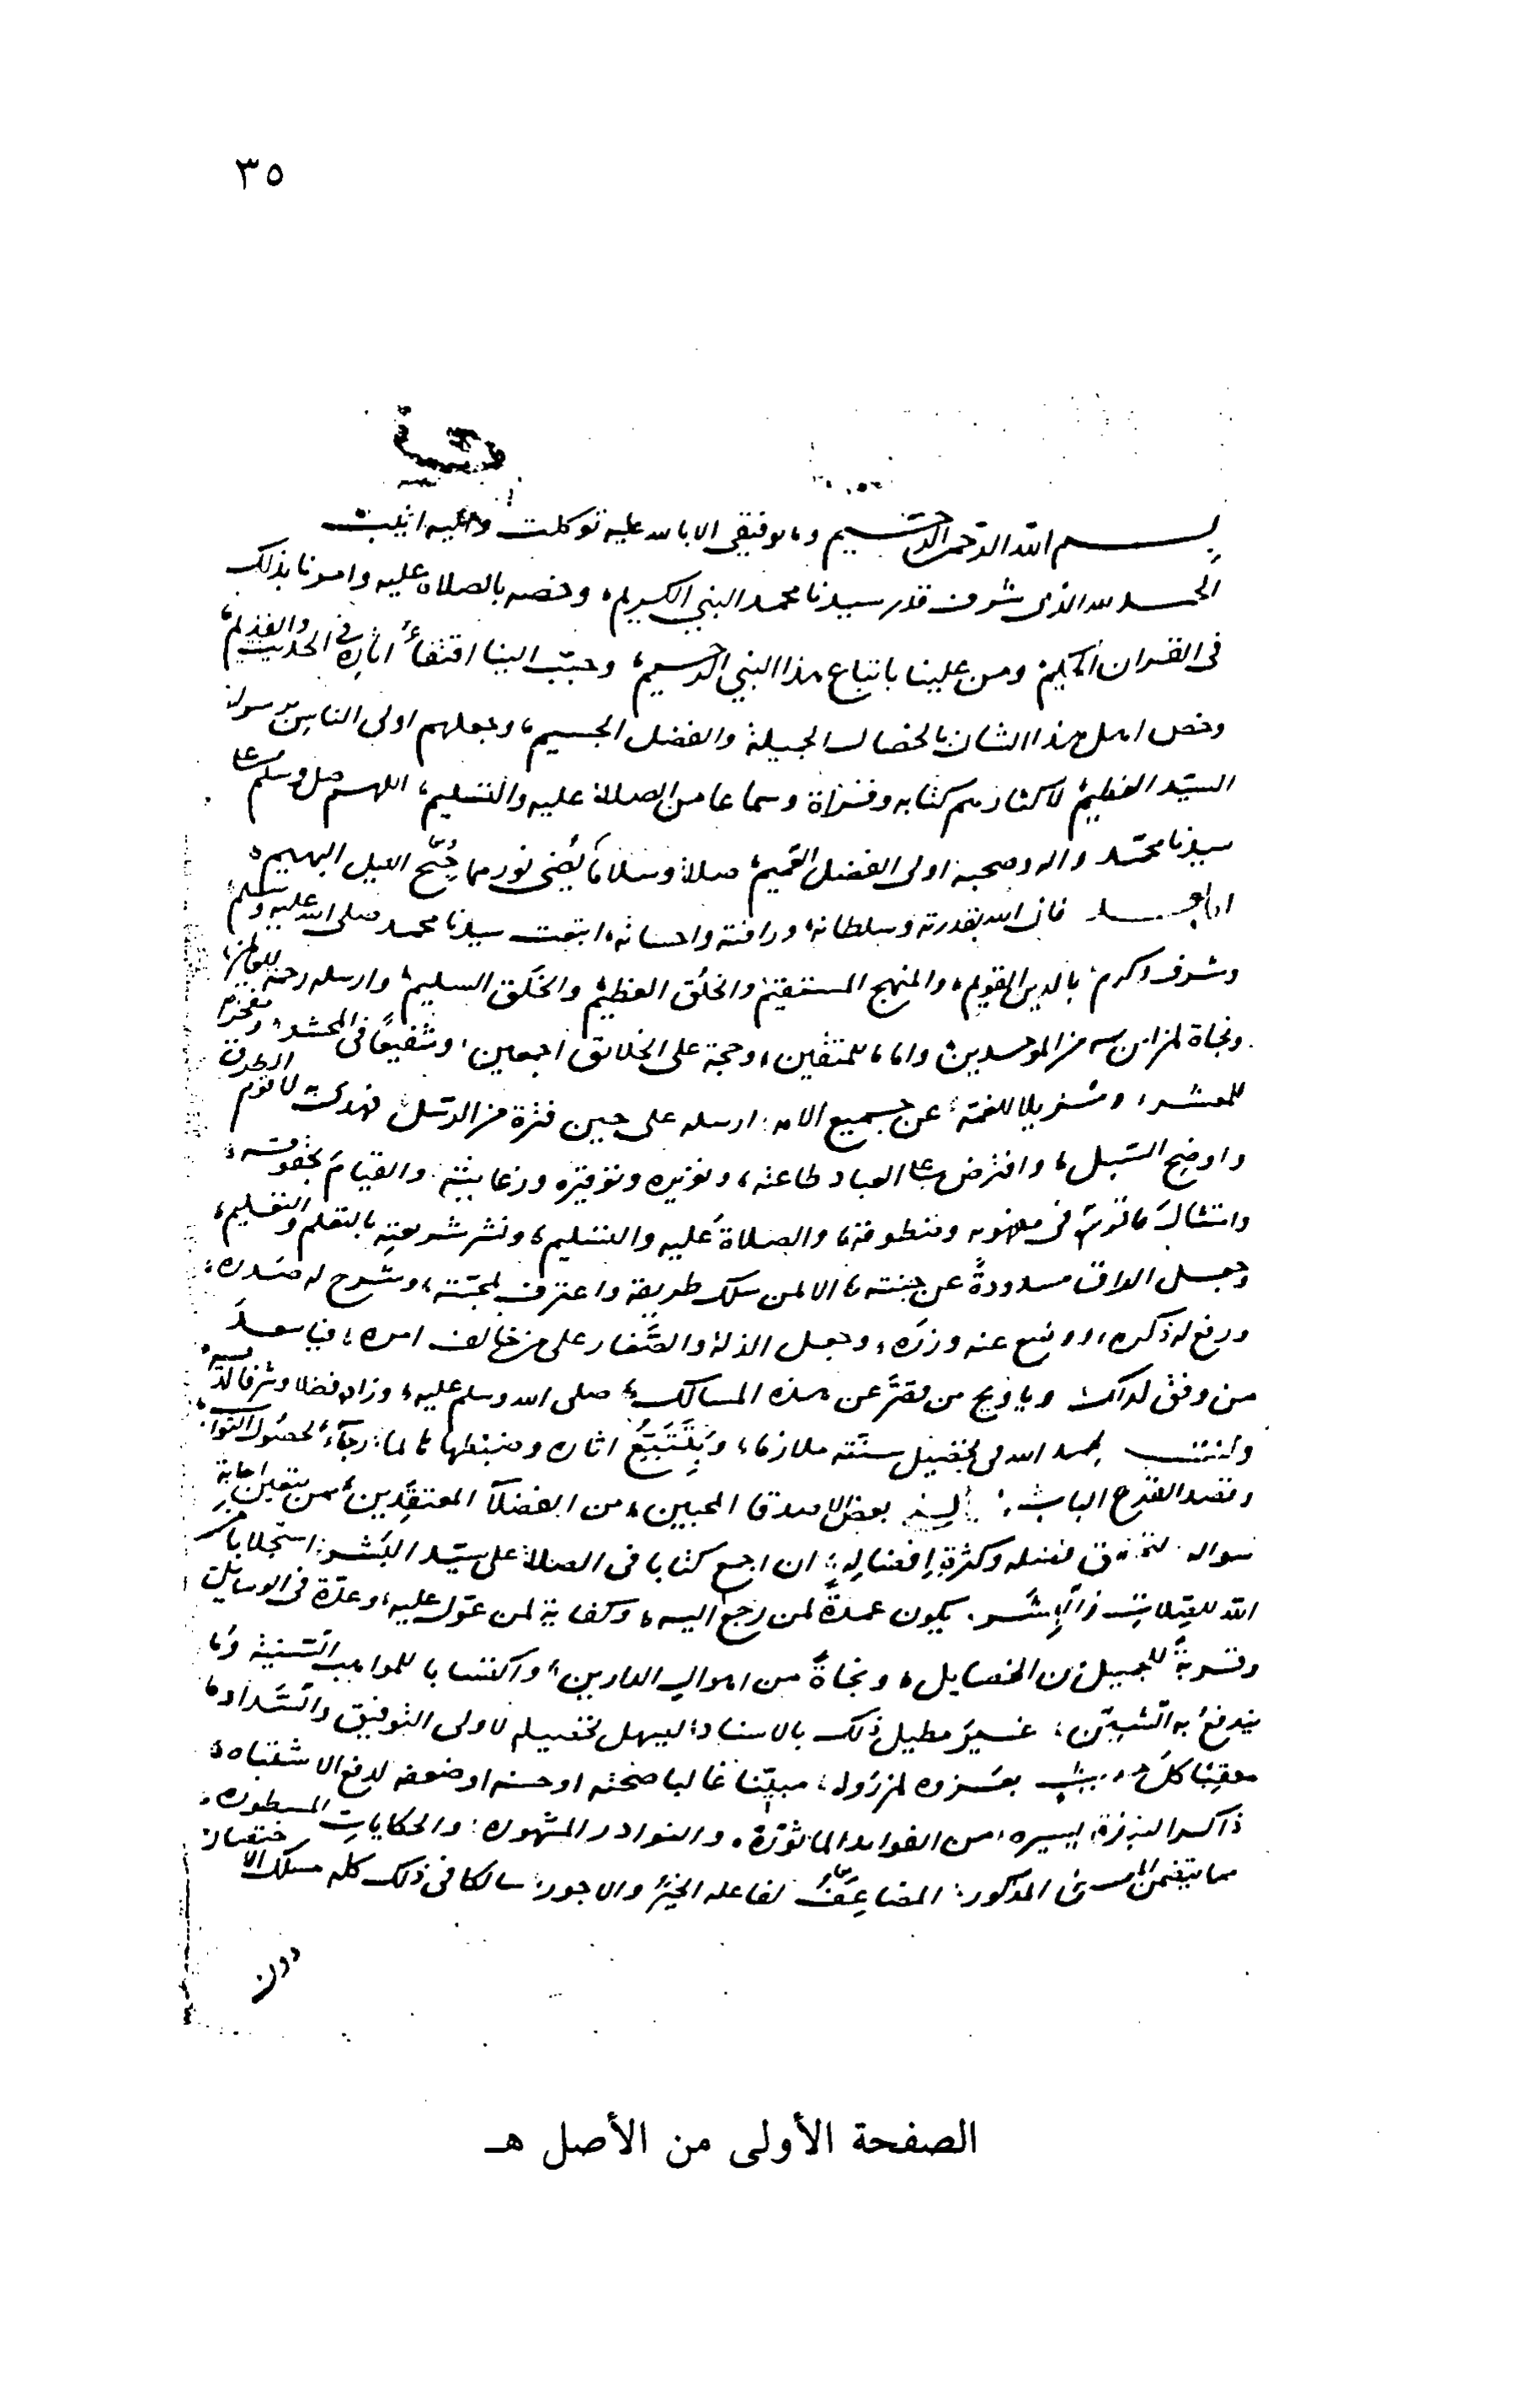 ٣٥
بسم الله الرحمن الرحيم وما توفيقي الا بالله عليه توكلت واليه انيب
الحمد لله الذي شرف قدر سيدنا محمد النبي الكريم، وخصه بالصلاة عليه وامرنا بذلك
في القران الحكيم ومن علينا باتباع هذا النبي الرحيم، وحبب الينا اقتفاء اثاره في الحديث والقديم،
وخص اهل هذا الشان بالخصال الجميلة والفضل الجسيم، وجعلهم اولى الناس برسوله
السيد العظيم لاكثارهم كتابة وقراة وسماعا من الصلاة عليه والتسليم، اللهم صل وسلم على
سيدنا محمد واله وصحبه اولى الفضل العميم، صلاة وسلاما يضي نورهما جنح الليل البهيم،
اما بعد فان الله بقدرته وسلطانه، ورافته واحسانه، ابتعث سيدنا محمد صلى الله عليه وسلم
وشرف وكرم بالدين القويم، والمنهج المستقيم والخلق العظيم والخلق السليم، وارسله رحمة للعالمين،
ونجاة لمن امن به من الموحدين، واماما للمتقين، وحجة على الخلائق اجمعين، وشفيعا في المحشر، ومفخرا
للمعشر، ومزيلا للغمة، عن جميع الامة، ارسله على حين فترة من الرسل فهدى به لاقوم الطرق
واوضح السبل، وافترض على العباد طاعته، وتعزيره وتوقيره ورعايته، والقيام بحقوقه،
وامتثال ما قرره في مفهومه ومنطوقه، والصلاة عليه والتسليم، ونشر شريعته بالتعلم والتعليم،
وجعل الطرق مسدودة عن جنته، الا لمن سلك طريقه واعترف بمحبته، وشرح له صدره،
ورفع له ذكره، ووضع عنه وزره، وجعل الذلة والصغار على من خالف امره، فيا سعد
من وفق لذلك ويا ويح من قصر عن هذه المسالك، صلى الله وسلم عليه، وزاده فضلا وشرفا لديه،
وكنت بحمد الله في تحصيل سنته ملازما، وبتتبع اثاره وضبطها رجاء لحصول الثواب،
وقصد القرع الباب، بعض الاصدقا المحبين، من الفضلا المعتقدين، ممن يتعين اجابة
سواله لتحقق فضله وكثرة افضاله، ان اجمع كتابا في الصلاة على سيد البشر، استجلابا من
الله للصلات والبشر، يكون عمدة لمن رجع اليه، وكفاية لمن عول عليه، وعدة في الوسائل
وقربة للجميل من الخصايل، ونجاة من اهوال الدارين، واكتسابا للمواهب السنية وما
يندفع به الشين، غير مطيل ذلك بالاسناد، ليسهل تحصيله لاولى التوفيق والسداد،
معقبا كل حديث بعزوه لمن رواه، مبينا غالبا صحته او حسنه او ضعفه لدفع الاشتباه،
ذاكرا لنبذة يسيره، من الفوايد الماثورة، والنوادر المشهوره، والحكايات المسطوره،
مما يتضمن المعنى المذكور، المضاعف لفاعله الخير والاجور، سالكا في ذلك كله مسلك الاختصار
دون
الصفحة الأولى من الأصل هـ